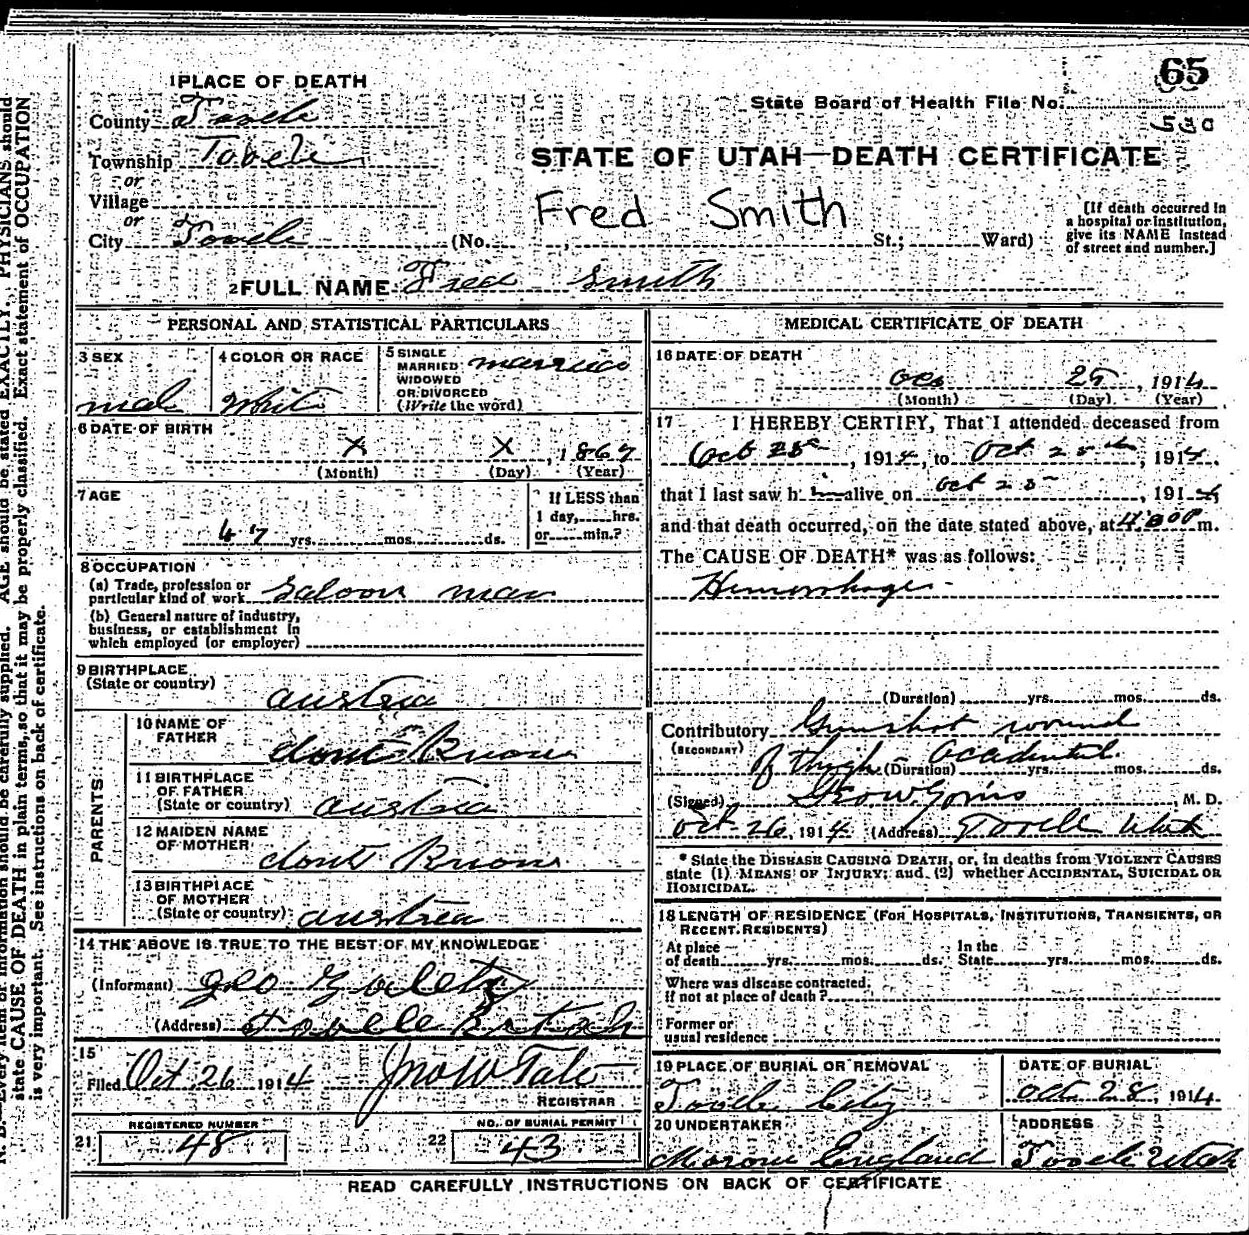 65
1 PLACE OF DEATH
State Board of Health File No.
County Tooele
530
Township Tooele
STATE OF UTAH—DEATH CERTIFICATE
or
Village
or
Fred Smith
City Tooele (No. , St.; Ward)
[If death occurred in
a hospital or institution,
give its NAME instead
of street and number.]
2 FULL NAME Fred Smith
PERSONAL AND STATISTICAL PARTICULARS
3 SEX
male
4 COLOR OR RACE
White
5 SINGLE
MARRIED
WIDOWED
OR DIVORCED
(Write the word)
married
6 DATE OF BIRTH
X X , 1867
(Month) (Day) (Year)
7 AGE
47 yrs. mos. ds.
If LESS than
1 day, hrs.
or min.?
8 OCCUPATION
(a) Trade, profession or
particular kind of work Saloon man
(b) General nature of industry,
business, or establishment in
which employed (or employer)
9 BIRTHPLACE
(State or country)
austria
PARENTS
10 NAME OF
FATHER
dont Know
11 BIRTHPLACE
OF FATHER
(State or country) austria
12 MAIDEN NAME
OF MOTHER dont Know
13 BIRTHPLACE
OF MOTHER
(State or country) austria
14 THE ABOVE IS TRUE TO THE BEST OF MY KNOWLEDGE
(Informant) Geo
(Address) Tooele Utah
15
Filed Oct 26 1914 Jno W Tate
REGISTRAR
REGISTERED NUMBER
21 48
NO. OF BURIAL PERMIT
22 43
MEDICAL CERTIFICATE OF DEATH
16 DATE OF DEATH
Oct 25, 1914
(Month) (Day) (Year)
17 I HEREBY CERTIFY, That I attended deceased from
Oct 25th, 1914, to Oct 25th, 1914,
that I last saw h im alive on Oct 25, 1914
and that death occurred, on the date stated above, at m.
The CAUSE OF DEATH* was as follows:
Hemorrhage
(Duration) yrs. mos. ds.
Contributory Gunshot wound
(SECONDARY)
of thigh. Accidental.
(Duration) yrs. mos. ds.
(Signed) , M. D.
Oct 26, 1914 (Address) Tooele Utah
* State the DISEASE CAUSING DEATH, or, in deaths from VIOLENT CAUSES
state (1) MEANS OF INJURY; and (2) whether ACCIDENTAL, SUICIDAL OR
HOMICIDAL.
18 LENGTH OF RESIDENCE (FOR HOSPITALS, INSTITUTIONS, TRANSIENTS, OR
RECENT RESIDENTS)
At place
of death yrs. mos. ds.
In the
State yrs. mos. ds.
Where was disease contracted,
If not at place of death?
Former or
usual residence
19 PLACE OF BURIAL OR REMOVAL
Tooele City
DATE OF BURIAL
Oct 28, 1914
20 UNDERTAKER
Moroni England
ADDRESS
Tooele Utah
READ CAREFULLY INSTRUCTIONS ON BACK OF CERTIFICATE
N. B.—Every item of information should be carefully supplied. AGE should be stated EXACTLY. PHYSICIANS should
state CAUSE OF DEATH in plain terms, so that it may be properly classified. Exact statement of OCCUPATION
is very important. See instructions on back of certificate.